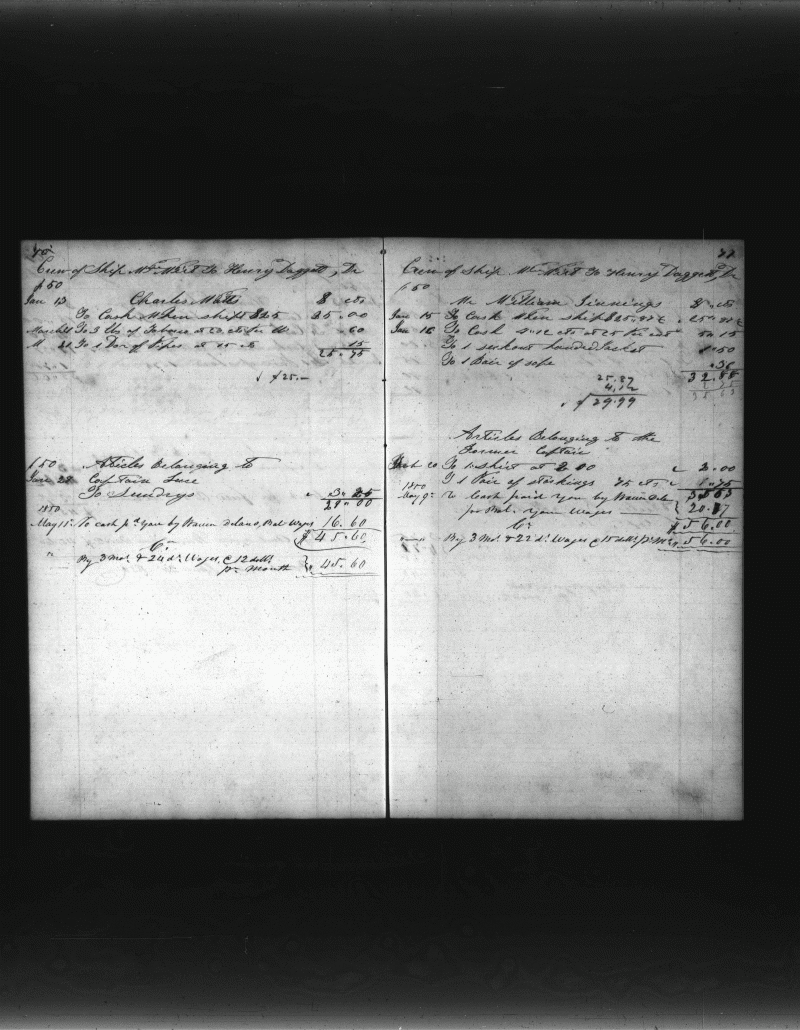 Crew of Ship Wm Wirt To Henry Daggett, Dr
1850
Jan 13 Charles Watts $ cts
To Cash When shipt $25 25.00
March To 3 lbs of Tobacco at 20 cts per lb .60
M 21 To 1 Doz of Pipes at 15 cts 15
25.75
$25.—
1850 Articles Belonging to
June 28 Captain Luce
To Sundrys 3.25
29.00
1850
May 11 To cash pd you by Warren Delano, Bal Wages 16.60
$45.60
Cr
By 3 Mos & 24 ds Wages @ 12 dolls
pr Month 45.60
77
Crew of Ship Wm Wirt To Henry Daggett, Dr
1850
Mr William Jinnings $ cts
Jan 15 To Cash When shipt
Jan 16 To Cash
To 1 Jacket 1.50
To 1 Pair of
25.87
4.12
$29.99
Articles Belonging to the
Former Captain
To 1 shirt at 2.00 2.00
To 1 Pair of stockings 75 cts
1850
May 9 To Cash paid you by Warren Delano
for Bal. your Wages 20.37
$56.00
Cr
By 3 Mos & 22 ds Wages @ 15 dolls pr Mo 56.00